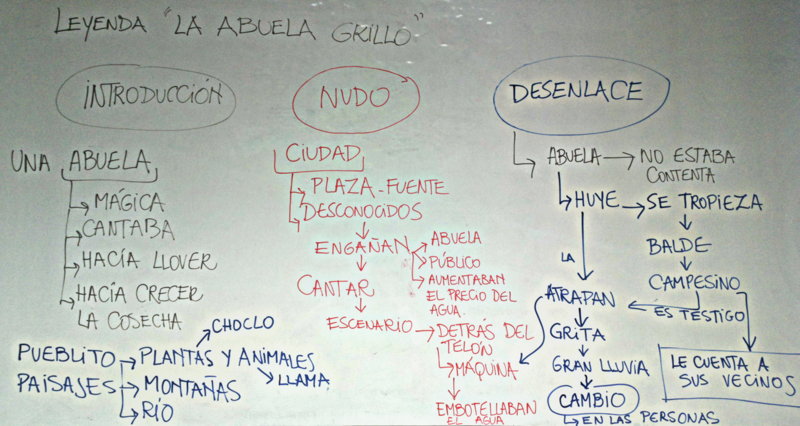 LEYENDA "LA ABUELA GRILLO"
INTRODUCCIÓN
UNA ABUELA
MÁGICA
CANTABA
HACÍA LLOVER
HACÍA CRECER
LA COSECHA
PUEBLITO
PAISAJES
PLANTAS Y ANIMALES
CHOCLO
LLAMA
MONTAÑAS
RÍO
NUDO
CIUDAD
PLAZA - FUENTE
DESCONOCIDOS
ENGAÑAN
ABUELA
PÚBLICO
AUMENTABAN
EL PRECIO DEL
AGUA
CANTAR
ESCENARIO
DETRÁS DEL
TELÓN
MÁQUINA
EMBOTELLABAN
EL AGUA
DESENLACE
ABUELA
NO ESTABA
CONTENTA
HUYE
SE TROPIEZA
BALDE
CAMPESINO
ES TESTIGO
LE CUENTA A
SUS VECINOS
LA
ATRAPAN
GRITA
GRAN LLUVIA
CAMBIO
EN LAS PERSONAS